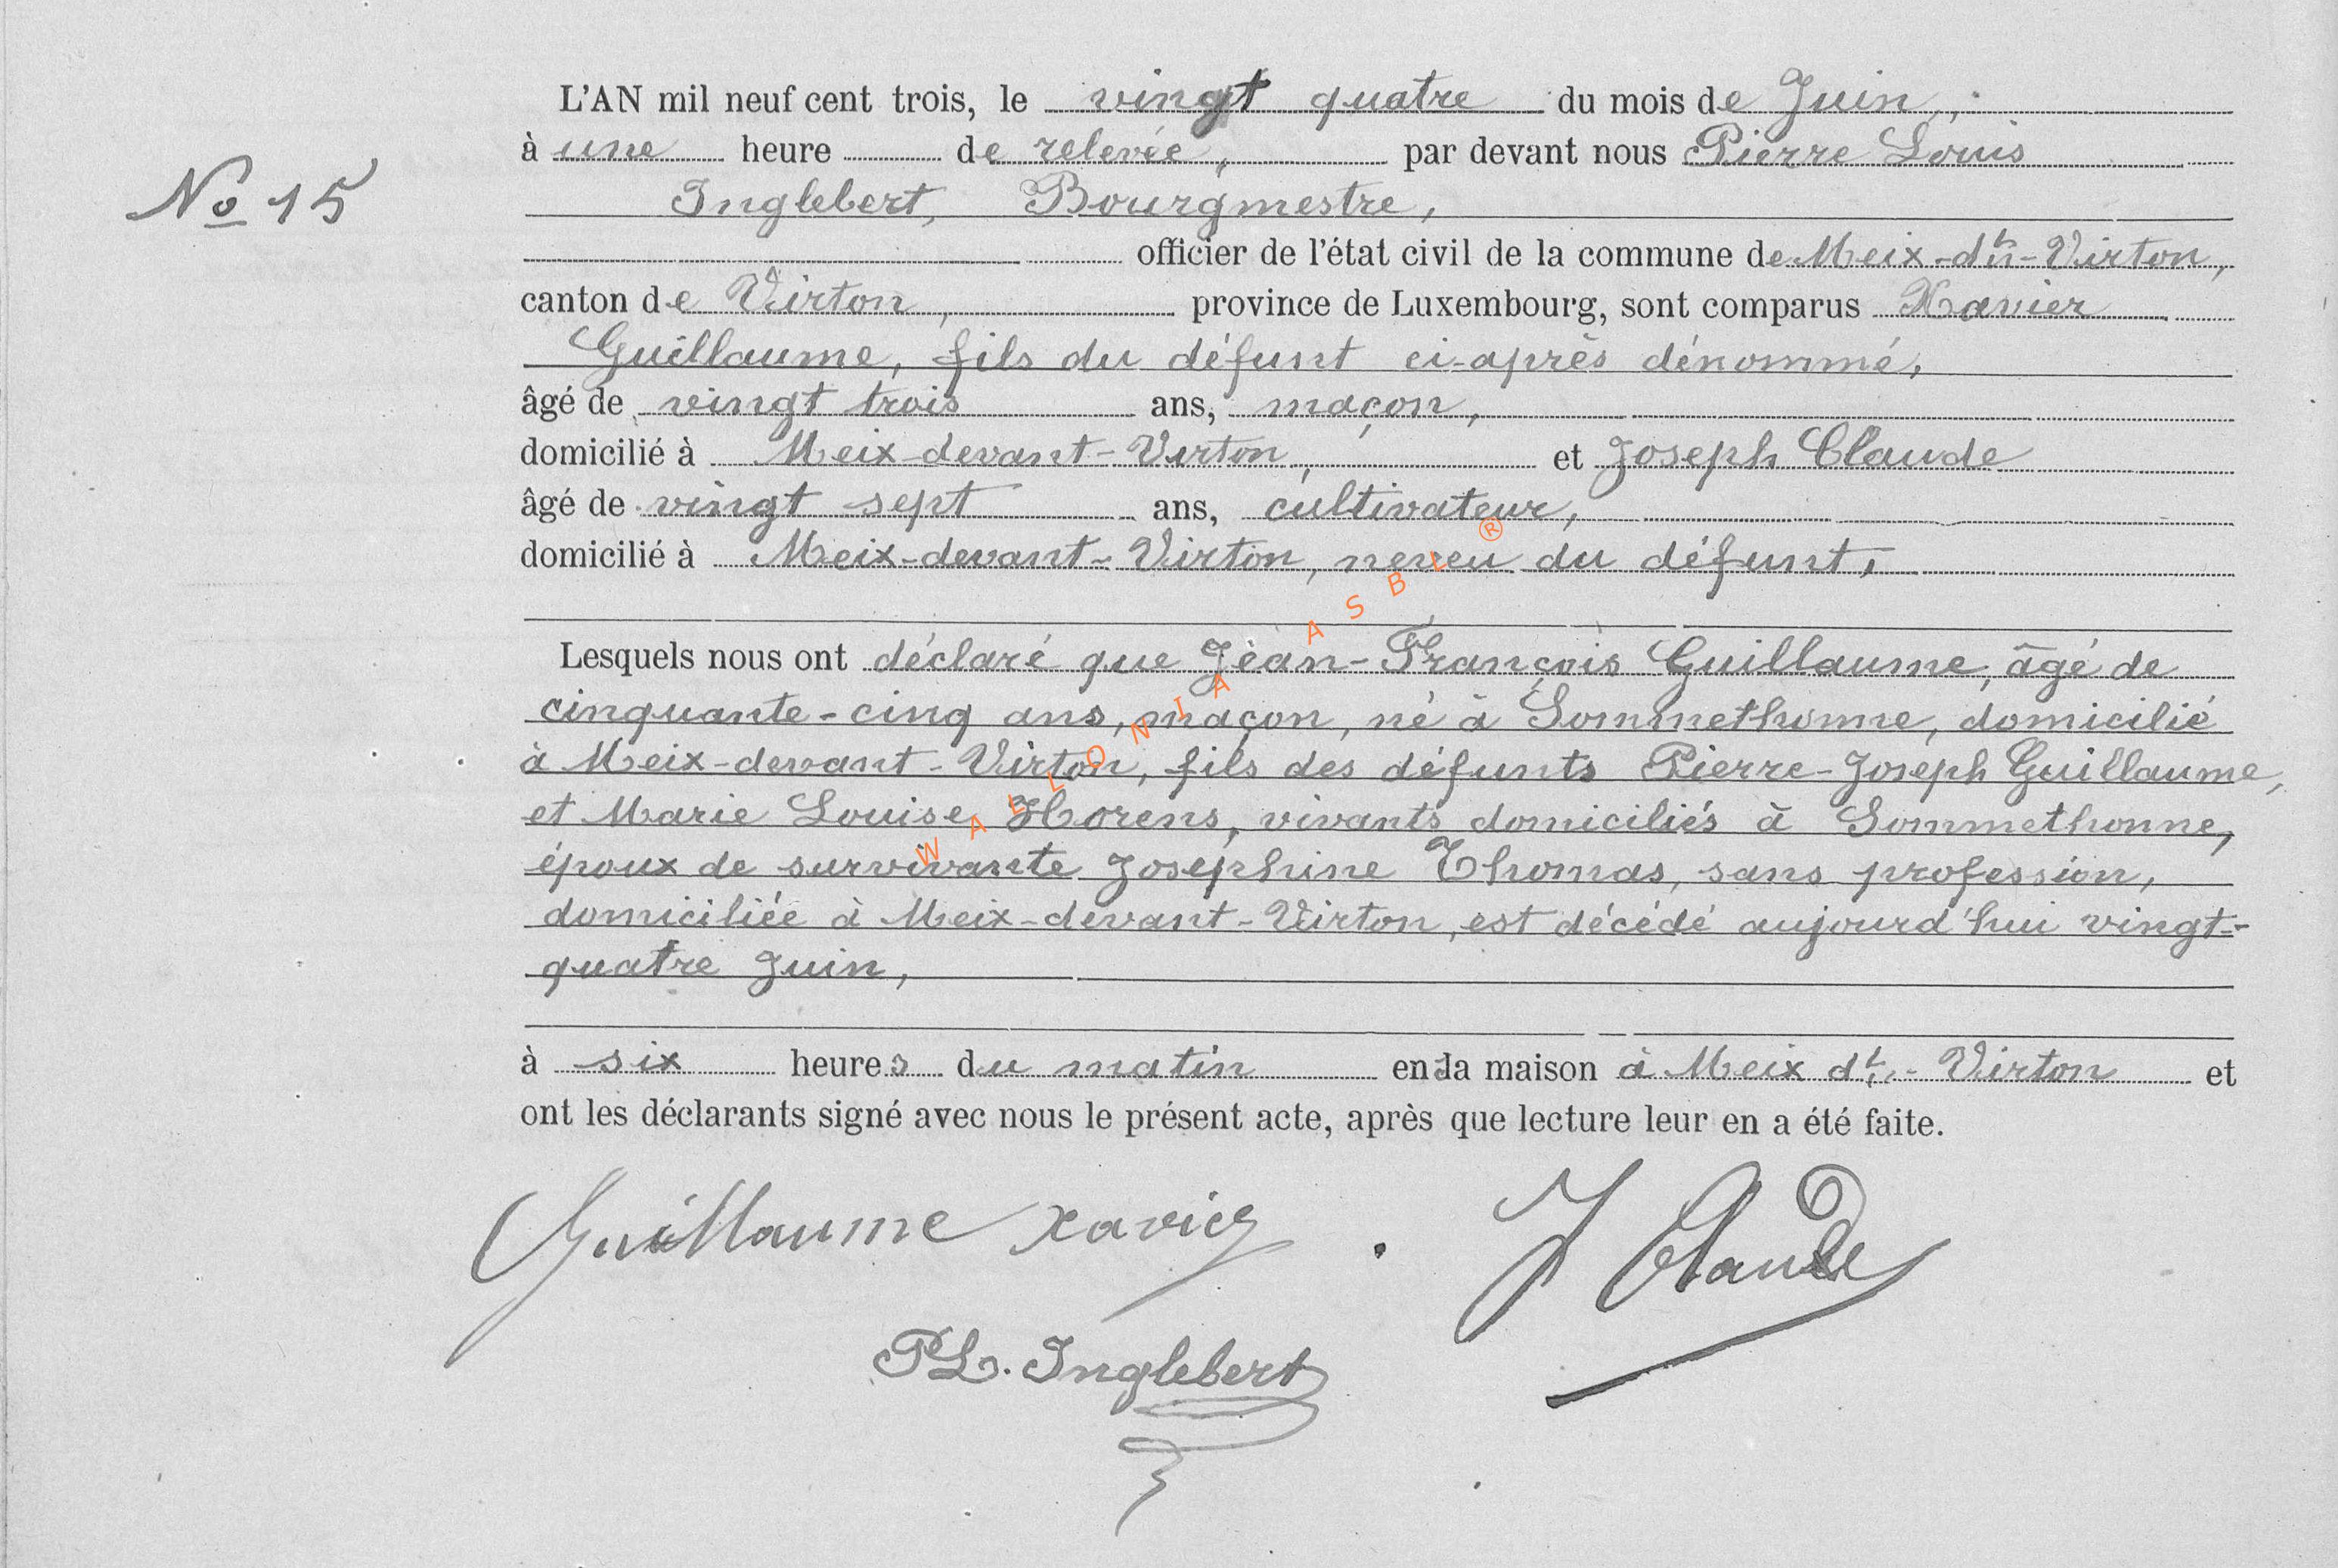 L'AN mil neuf cent trois, le vingt quatre du mois de Juin,
à une heure de relevée, par devant nous Pierre Louis
No 15
Inglebert, Bourgmestre,
officier de l'état civil de la commune de Meix-dt-Virton,
canton de Virton, province de Luxembourg, sont comparus Xavier
Guillaume, fils du défunt ci-après dénommé,
âgé de vingt trois ans, maçon,
domicilié à Meix-devant-Virton, et Joseph Claude
âgé de vingt sept ans, cultivateur,
domicilié à Meix-devant-Virton, neveu du défunt,
Lesquels nous ont déclaré que Jean-François Guillaume, âgé de
cinquante-cinq ans, maçon, né à Sommethonne, domicilié
à Meix-devant-Virton, fils des défunts Pierre-Joseph Guillaume,
et Marie Louise Horens, vivants domiciliés à Sommethonne,
époux de survivante Joséphine Thomas, sans profession,
domiciliée à Meix-devant-Virton, est décédé aujourd'hui vingt-
quatre Juin,
à six heures du matin en sa maison à Meix dt-Virton et
ont les déclarants signé avec nous le présent acte, après que lecture leur en a été faite.
Guillaume Xavier
J Claude
PL. Inglebert
WALLONIA ASBL ®